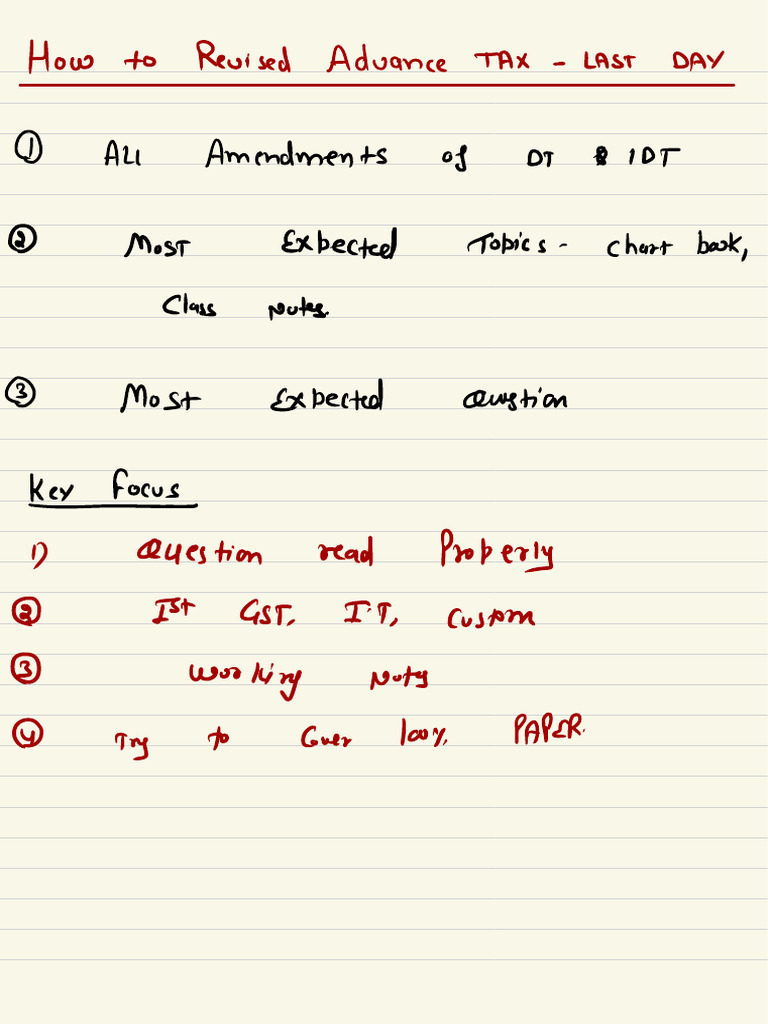 How to Revised Advance TAX - LAST DAY
① All Amendments of DT & IDT
② Most Expected Topics - chart book,
Class notes.
③ Most Expected Question
Key Focus
1) Question read Properly
② Ist GST, I.T, Custom
③ Working notes
④ Try to Cover 100% PAPER.